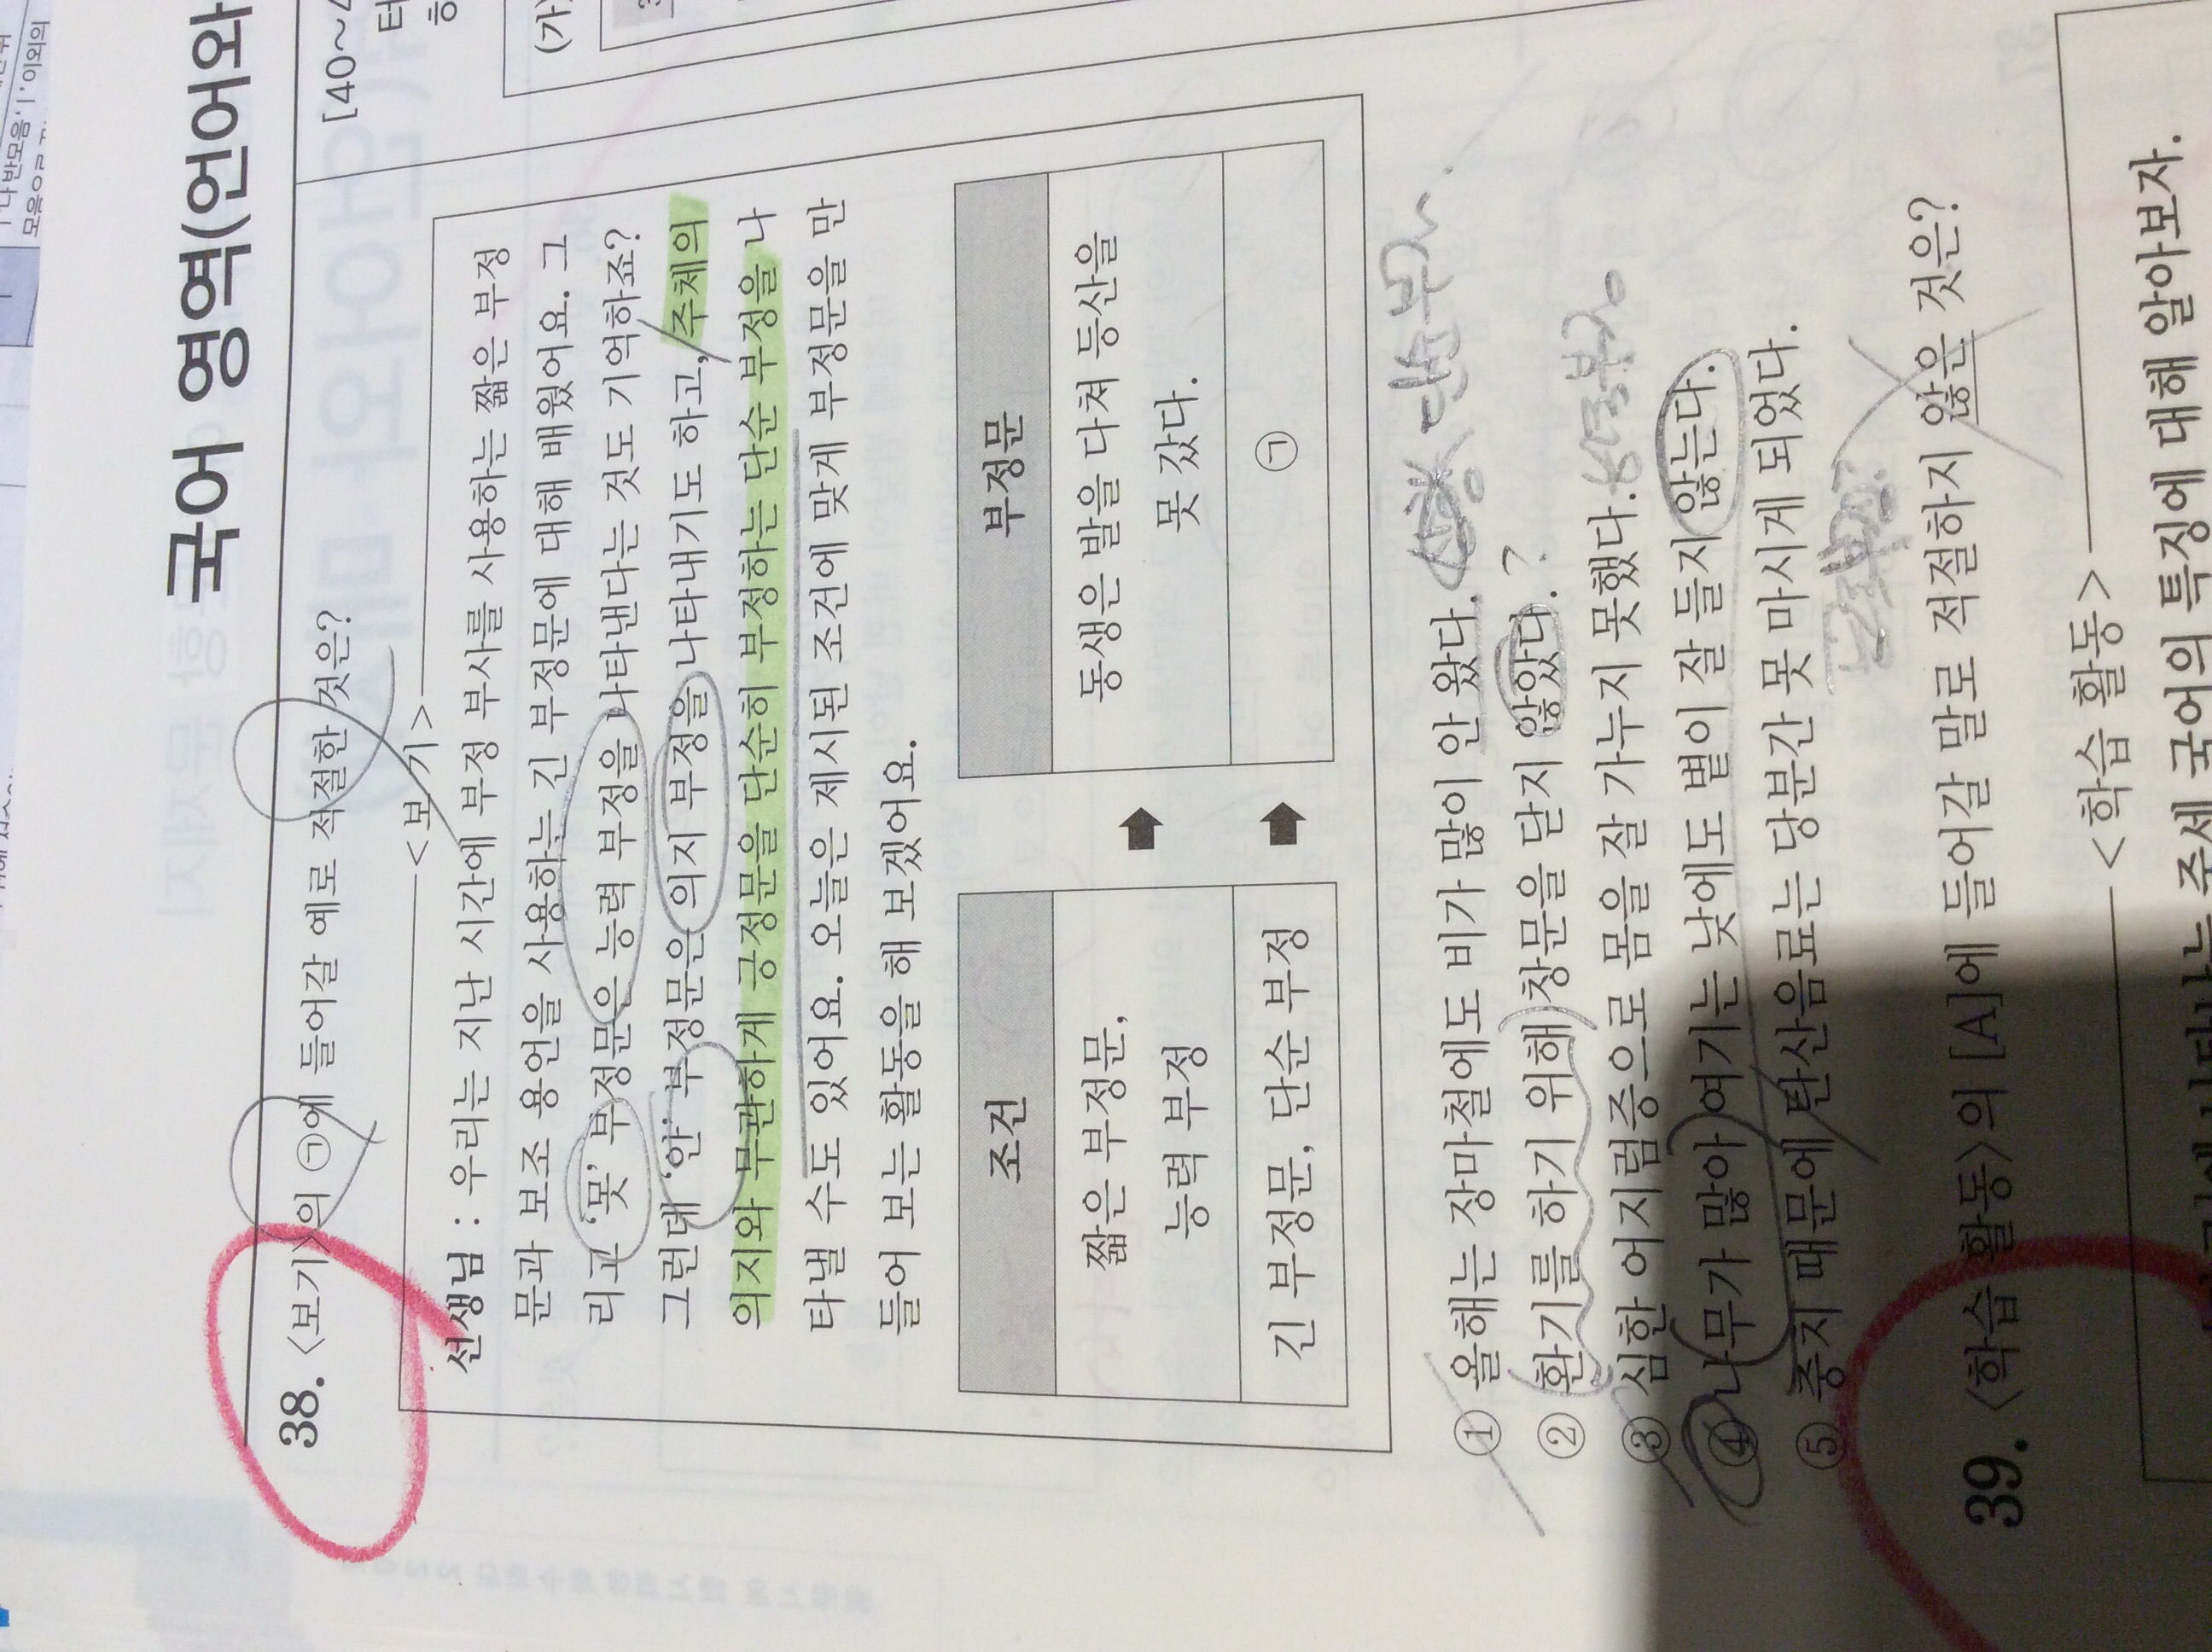 국어 영역(언어와
38. <보기>의 ㉠에 들어갈 예로 적절한 것은?
<보 기>
선생님 : 우리는 지난 시간에 부정 부사를 사용하는 짧은 부정
문과 보조 용언을 사용하는 긴 부정문에 대해 배웠어요. 그
리고 ‘못’ 부정문은 능력 부정을 나타낸다는 것도 기억하죠?
그런데 ‘안’ 부정문은 의지 부정을 나타내기도 하고, 주체의
의지와 무관하게 긍정문을 단순히 부정하는 단순 부정을 나
타낼 수도 있어요. 오늘은 제시된 조건에 맞게 부정문을 만
들어 보는 활동을 해 보겠어요.
조건
부정문
짧은 부정문,
능력 부정
동생은 발을 다쳐 등산을
못 갔다.
긴 부정문, 단순 부정
㉠
① 올해는 장마철에도 비가 많이 안 왔다. 단순부정.
② 환기를 하기 위해 창문을 닫지 않았다. ?
③ 심한 어지럼증으로 몸을 잘 가누지 못했다. 능력부정
④ 나무가 많아 여기는 낮에도 볕이 잘 들지 않는다.
⑤ 충치 때문에 탄산음료는 당분간 못 마시게 되었다.
39. <학습 활동>의 [A]에 들어갈 말로 적절하지 않은 것은?
<학습 활동>
국어의 특징에 대해 알아보자.
[40～
(가)